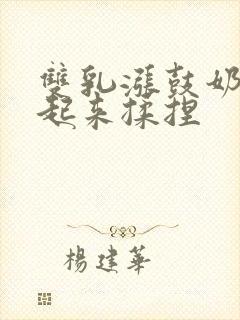 雙乳漲鼓奶
起來揉捏
楊建華